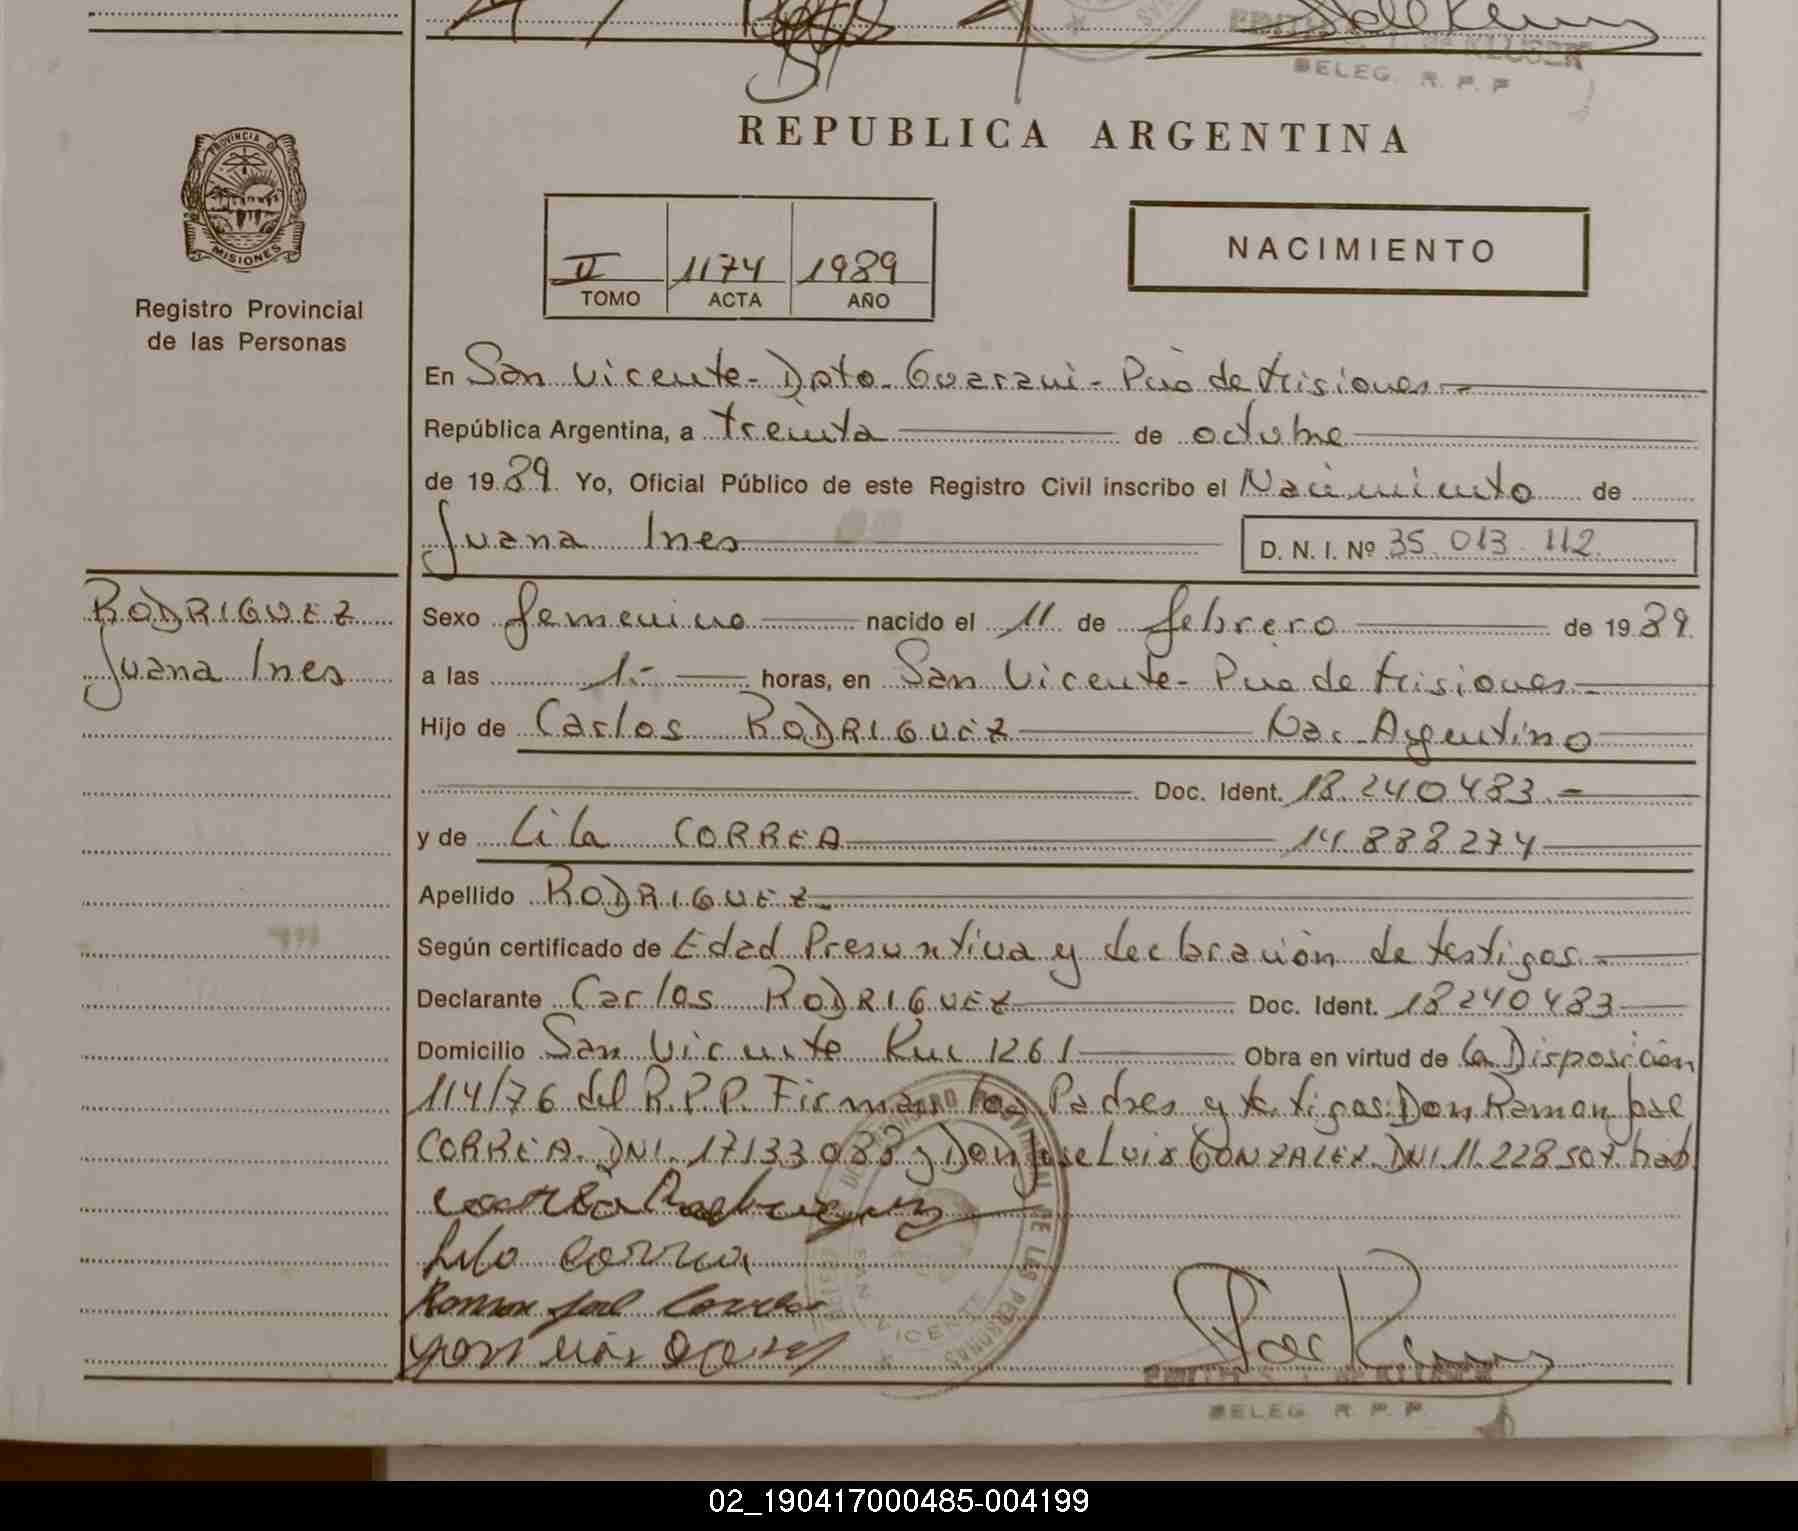 BELEG. R. P. P
REPUBLICA ARGENTINA
PROVINCIA D MISIONES
Registro Provincial
de las Personas
II 1174 1989
TOMO ACTA AÑO
NACIMIENTO
En San Vicente - Dpto. Guarani - Pcia de Misiones
República Argentina, a treinta de octubre
de 1989. Yo, Oficial Público de este Registro Civil inscribo el Nacimiento de
Juana Ines
D. N. I. Nº 35.013.112
RODRIGUEZ
Juana Ines
Sexo femenino nacido el 11 de febrero de 1989.
a las 1.- horas, en San Vicente - Pcia de Misiones.
Hijo de Carlos RODRIGUEZ Nac. Argentino
Doc. Ident. 18.240.483.-
y de Lila CORREA 14.888.274
Apellido RODRIGUEZ.
Según certificado de Edad Presuntiva y declaración de testigos.
Declarante Carlos RODRIGUEZ Doc. Ident. 18240483
Domicilio San Vicente Km 1261 Obra en virtud de la Disposición
114/76 del R.P.P. Firman los Padres y testigos: Don Ramon José
CORREA. DNI. 17133083 y Don Jose Luis GONZALEZ. DNI. 11.228.504. hab.
Lila Correa
Ramon José Correa
EDITH S. de KLUSER
BELEG. R. P. P.
02_190417000485-004199